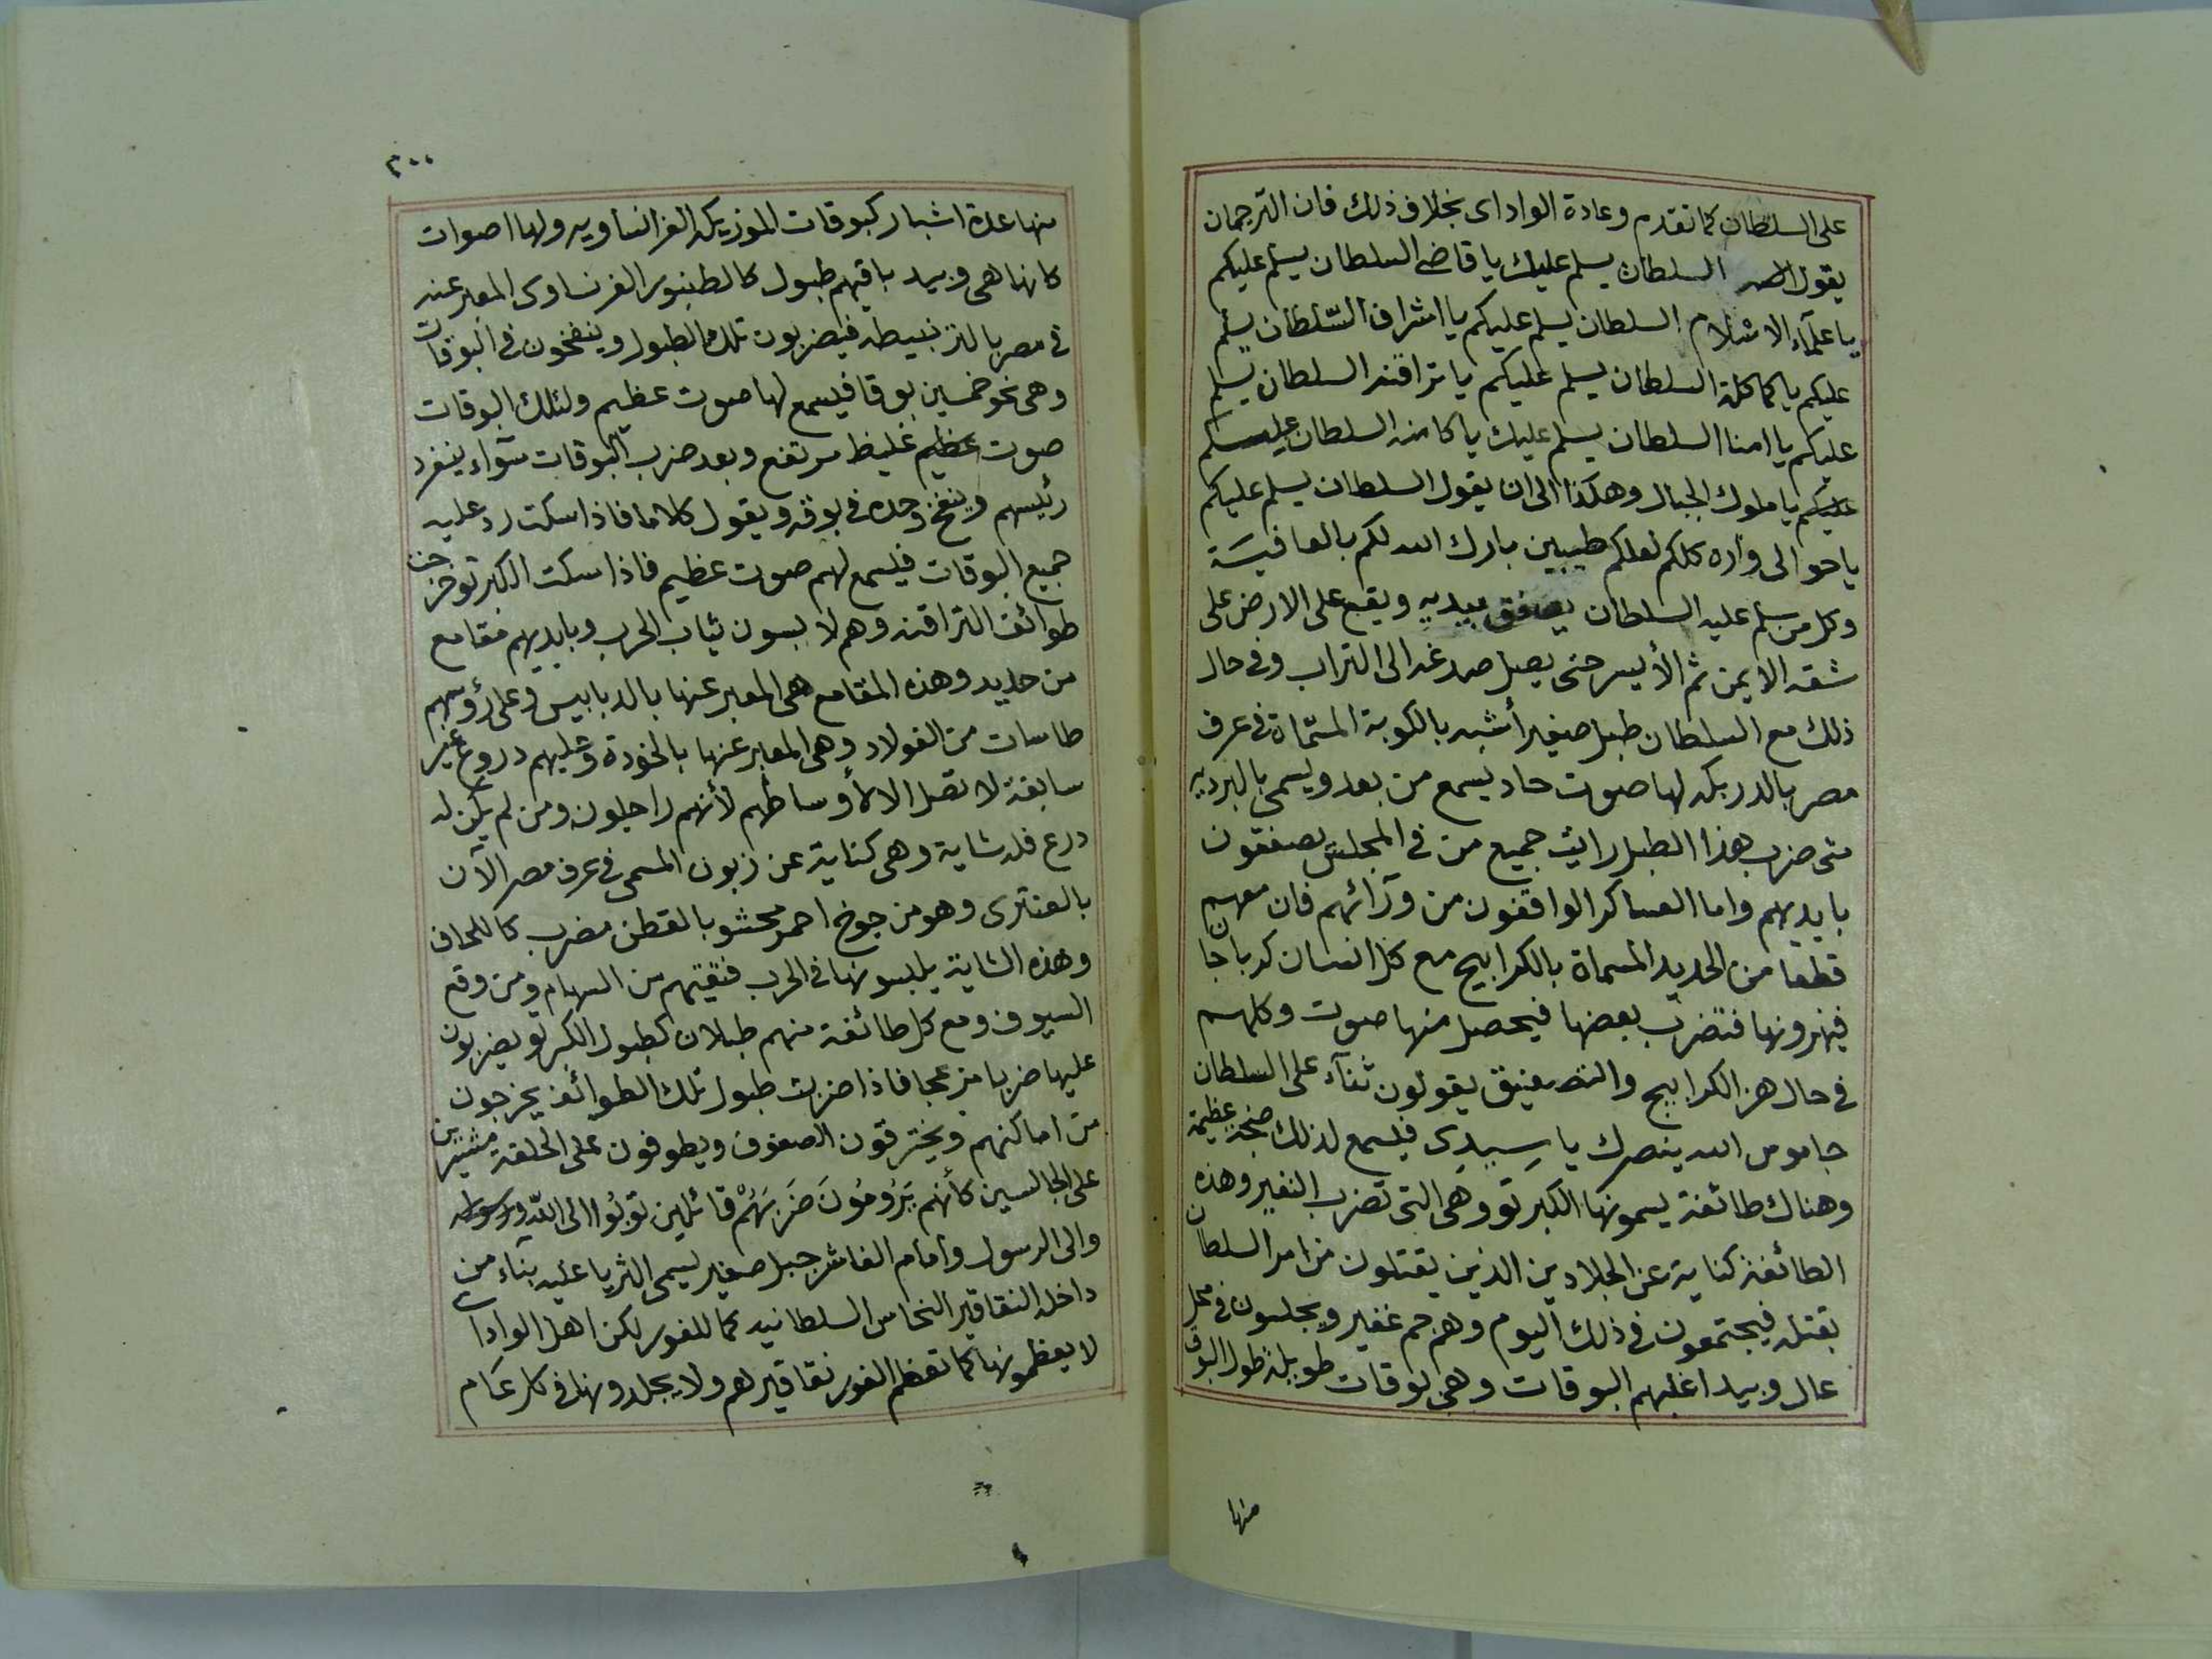 على السلطان كما تقدم وعادة الواداى بخلاف ذلك فان الترجمان
يقول السلطان يسلم عليك يا قاضى السلطان يسلم عليكم
يا علمآء الاسلام السلطان يسلم عليكم يا اشراف السّلطان يسلم
عليكم يا كماكلة السلطان يسلم عليكم يا تراقنه السلطان يسلم
عليكم يا امنا السلطان يسلم عليك يا كامنه السلطان يسلم
عليكم يا ملوك الجبال وهكذا الى ان يقول السلطان يسلم عليكم
يا حوالى واره كلكم لعلكم طيبين بارك الله لكم بالعافيَة
وكل من سلم عليه السلطان يصفق بيديه ويقع على الارض على
شقه الايمن ثم الأيسر حتى يصل صدغه الى التراب وفى حال
ذلك مع السلطان طبل صغير أشبه بالكوبة المسمّاة فى عرف
مصر بالدربكه لها صوت حاد يسمع من بعد ويسمى بالبرديه
متى ضرب بهذا الطبل رايت جميع من فى المجلس يصفقون
بايديهم واما العساكر الواقفون من ورآئهم فان معهم
قطعا من الحديد المسماة بالكرابيج مع كل انسان كرباجا
فيهزونها فتضرب بعضها فيحصل منها صوت وكلهم
فى حال هز الكرابيج والتصفيق يقولون ثنآء على السلطان
جاموس الله ينصرك يا سِيدِى فيسمع لذلك ضجة عظيمة
وهناك طائفة يسمونها الكبرتو وهى التى تضرب النفير وهذه
الطائفة كناية عن الجلادين الذين يقتلون من امر السلطان
بقتله فيجتمعون فى ذلك اليوم وهم جم غفير ويجلسون فى محل
عال وبيد اغلبهم البوقات وهى بوقات طويلة طول البوق
منها
٣٠٠
منها عدة اشبار كبوقات الموزيكه الفرانساويه ولها اصوات
كانها هى وبيد باقيهم طبول كالطنبور الفرنساوى المعبر عنه
فى مصر بالترنبيطه فيضربون تلك الطبول وينفخون فى البوقات
وهى نحو خمسين بوقا فيسمع لها صوت عظيم ولتلك البوقات
صوت عظيم غليظ مرتفع وبعد ضرب البوقات سوآء ينفرد
رئيسهم وينفخ وحده فى بوقه ويقول كلاما فاذا سكت رد عليه
جميع البوقات فيسمع لهم صوت عظيم فاذا سكت الكبرتو خرجت
طوائف التراقنه وهم لابسون ثياب الحرب وبايديهم مقامع
من حديد وهذه المقامع هى المعبر عنها بالدبابيس وعلى رؤسهم
طاسات من الفولاد وهى المعبر عنها بالخودة وعليهم دروع غير
سابغة لا تصل الا لأوساطهم لأنهم راجلون ومن لم يكن له
درع فله شاية وهى كناية عن زبون المسمى فى عرف مصر الآن
بالعنترى وهو من جوخ احمر محشو بالقطن مضرب كاللحاف
وهذه الشاية يلبسونها فى الحرب فتقيهم من السهام ومن وقع
السيوف ومع كل طائفة منهم طبلان كطبول الكبرتو يضربون
عليها ضربا مزعجا فاذا ضربت طبول تلك الطوائف يخرجون
من اماكنهم ويخترقون الصفوف ويطوفون على الحلقة مشيرين
على الجالسين كأنهم يَرُومُونَ ضَرْبَهُمْ قائلين توبُوا الى الله ورسوله
والى الرسول وأمام الفاشر جبل صغير يسمى الثريا عليه بنآء من
داخله النقاقير النحاس السلطانيه كما للفور لكن اهل الواداى
لا يعظمونها كما تعظم الفور نقاقيرهم ولا يجلدونها فى كل عَام